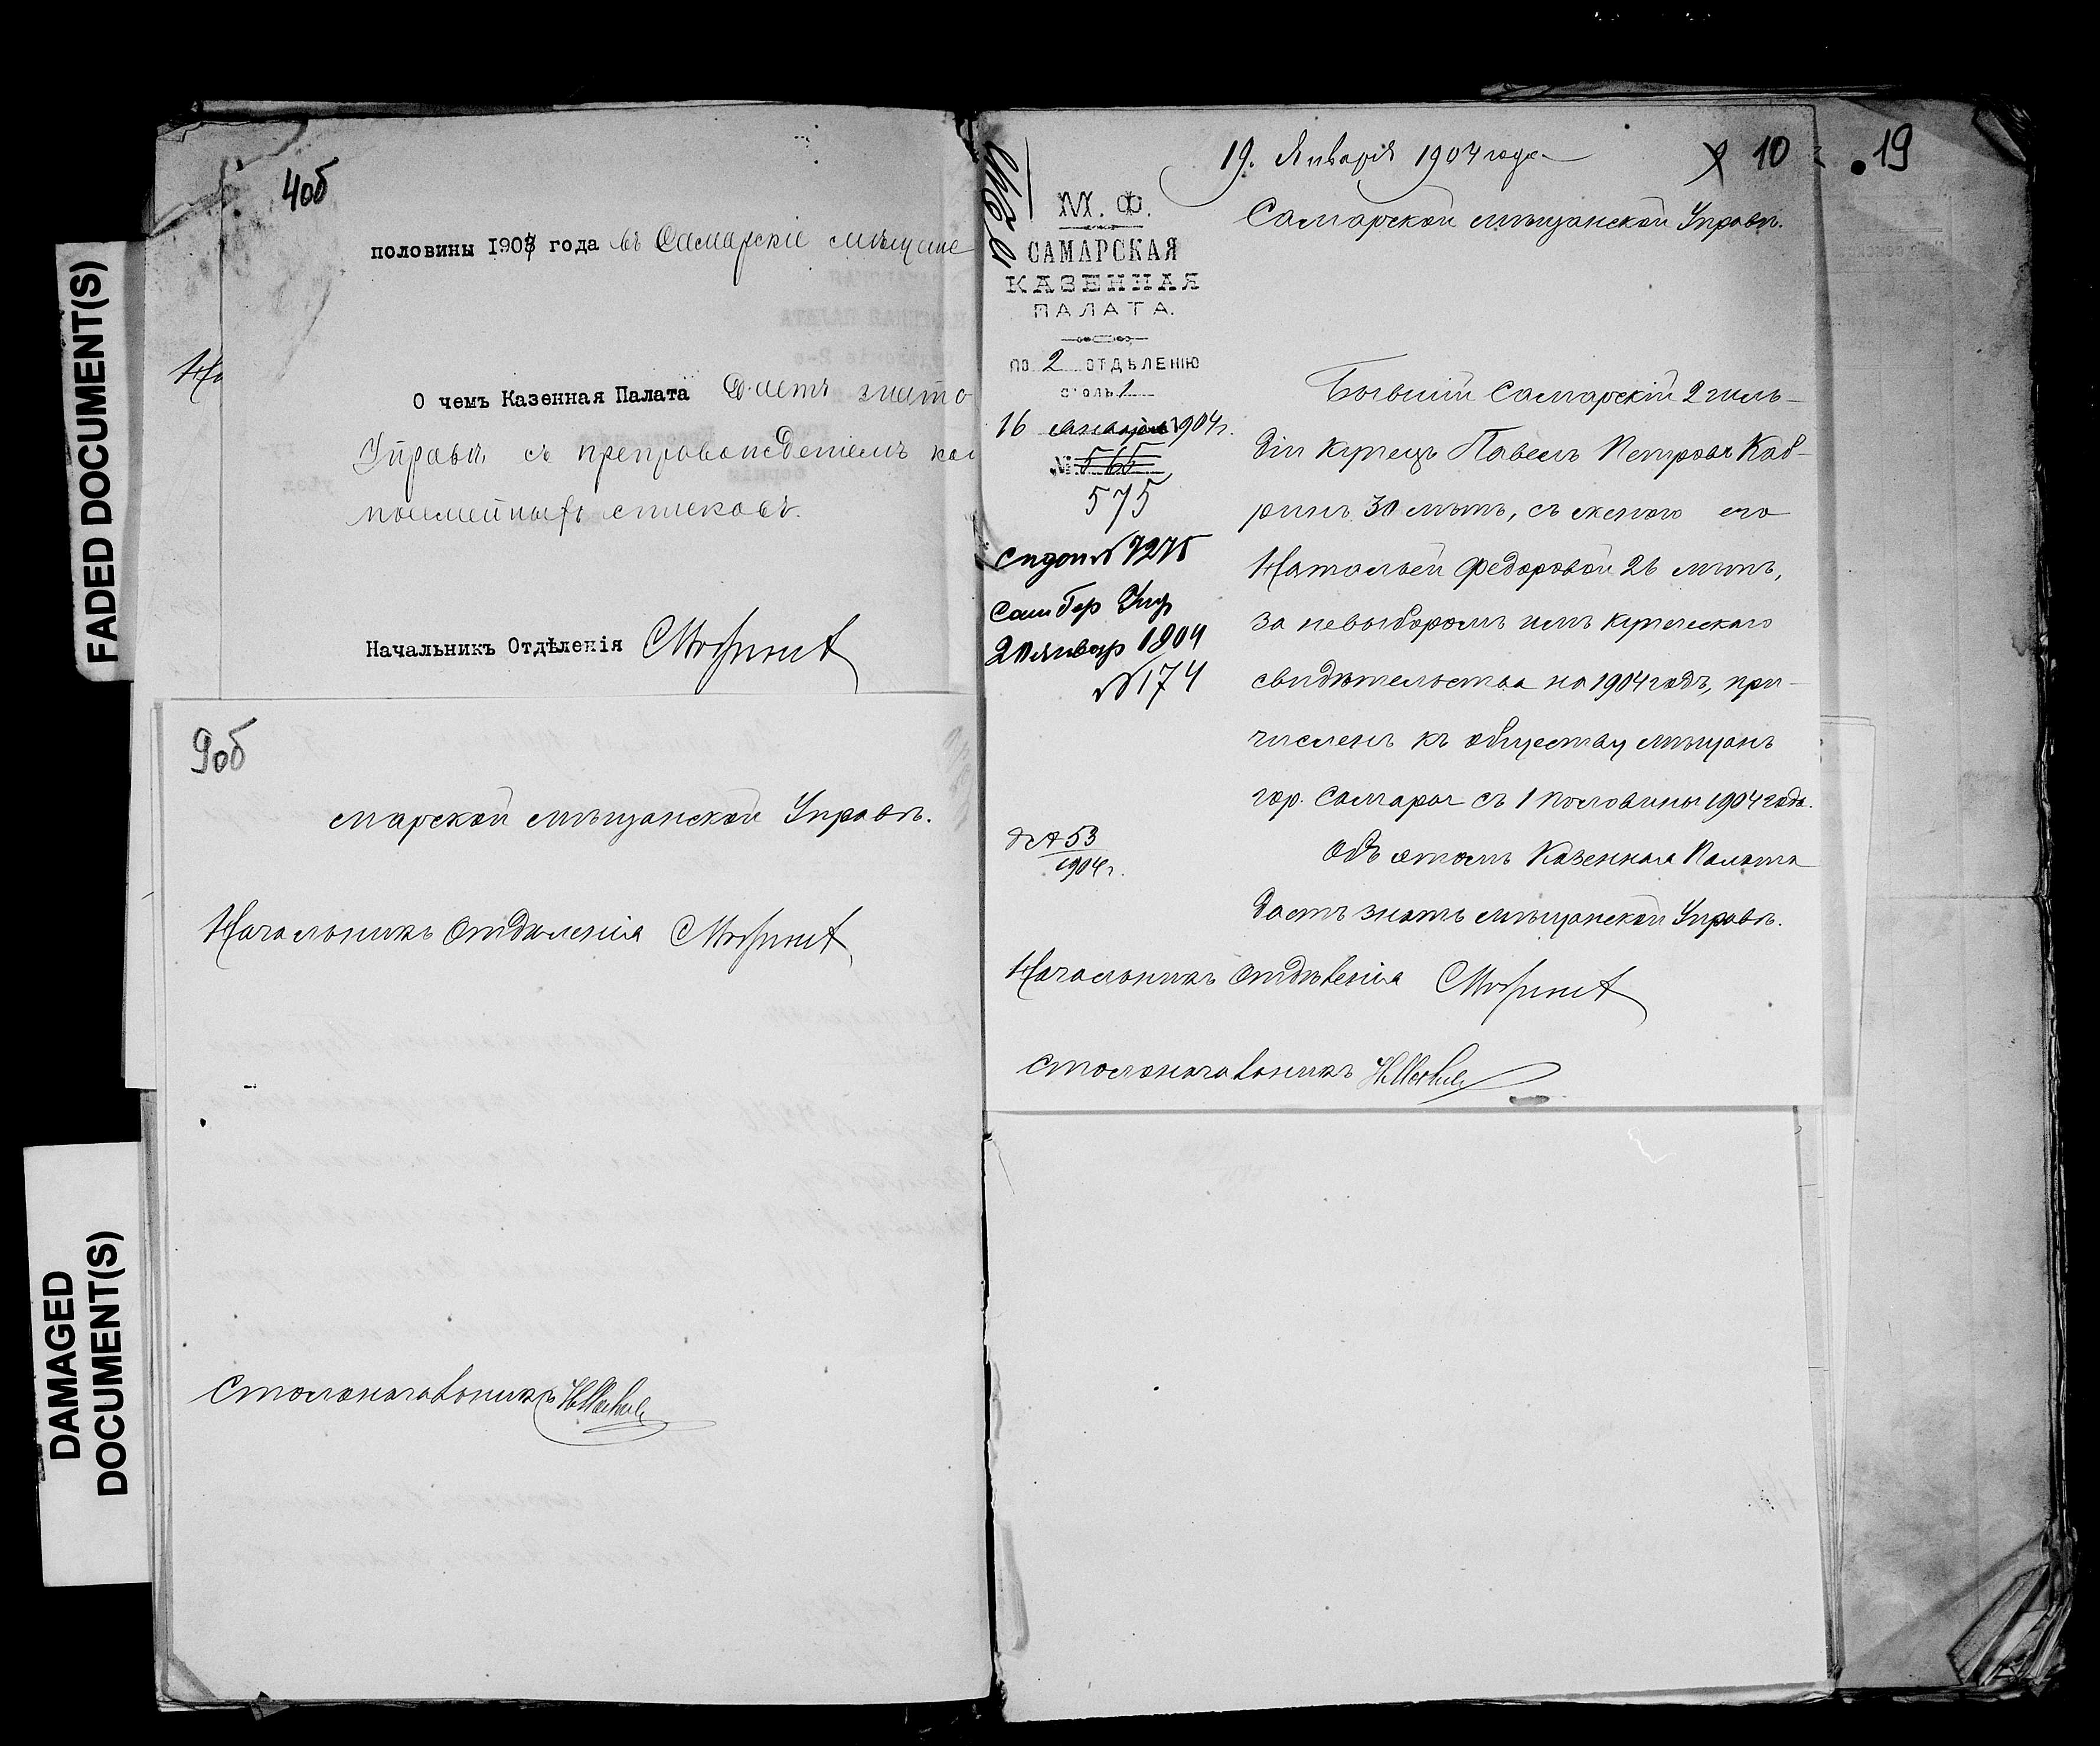 FADED DOCUMENT(S)
DAMAGED
DOCUMENT(S)
4об
половины 1903 года въ Самарскіе мѣщане
На
О чемъ Казенная Палата Даетъ знать
Управѣ, съ препровожденіемъ
списковъ.
Начальникъ Отдѣленія
9об
марской мѣщанской Управѣ.
Начальникъ Отдѣленія
Столоначальникъ
19. Января 1904 года
10
19
М. Ф.
САМАРСКАЯ
КАЗЕННАЯ
ПАЛАТА.
по 2 ОТДѢЛЕНІЮ
столъ 1
16 января 1904 г.
№ 565
575
7275
20 январ 1904
№ 174
53
1904 г.
Самарской мѣщанской Управѣ.
Бывшій Самарскій 2 гиль-
діи купецъ Павелъ Петровъ Кав-
ринъ 30 лѣтъ, съ женою его
Натальей Федоровой 26 лѣтъ,
за невыборомъ имъ купеческаго
свидѣтельства на 1904 годъ, при-
численъ къ обществу мѣщанъ
гор. Самары съ 1 половины 1904 года.
Объ этомъ Казенная Палата
даетъ знать мѣщанской Управѣ.
Начальникъ Отдѣленія
Столоначальникъ